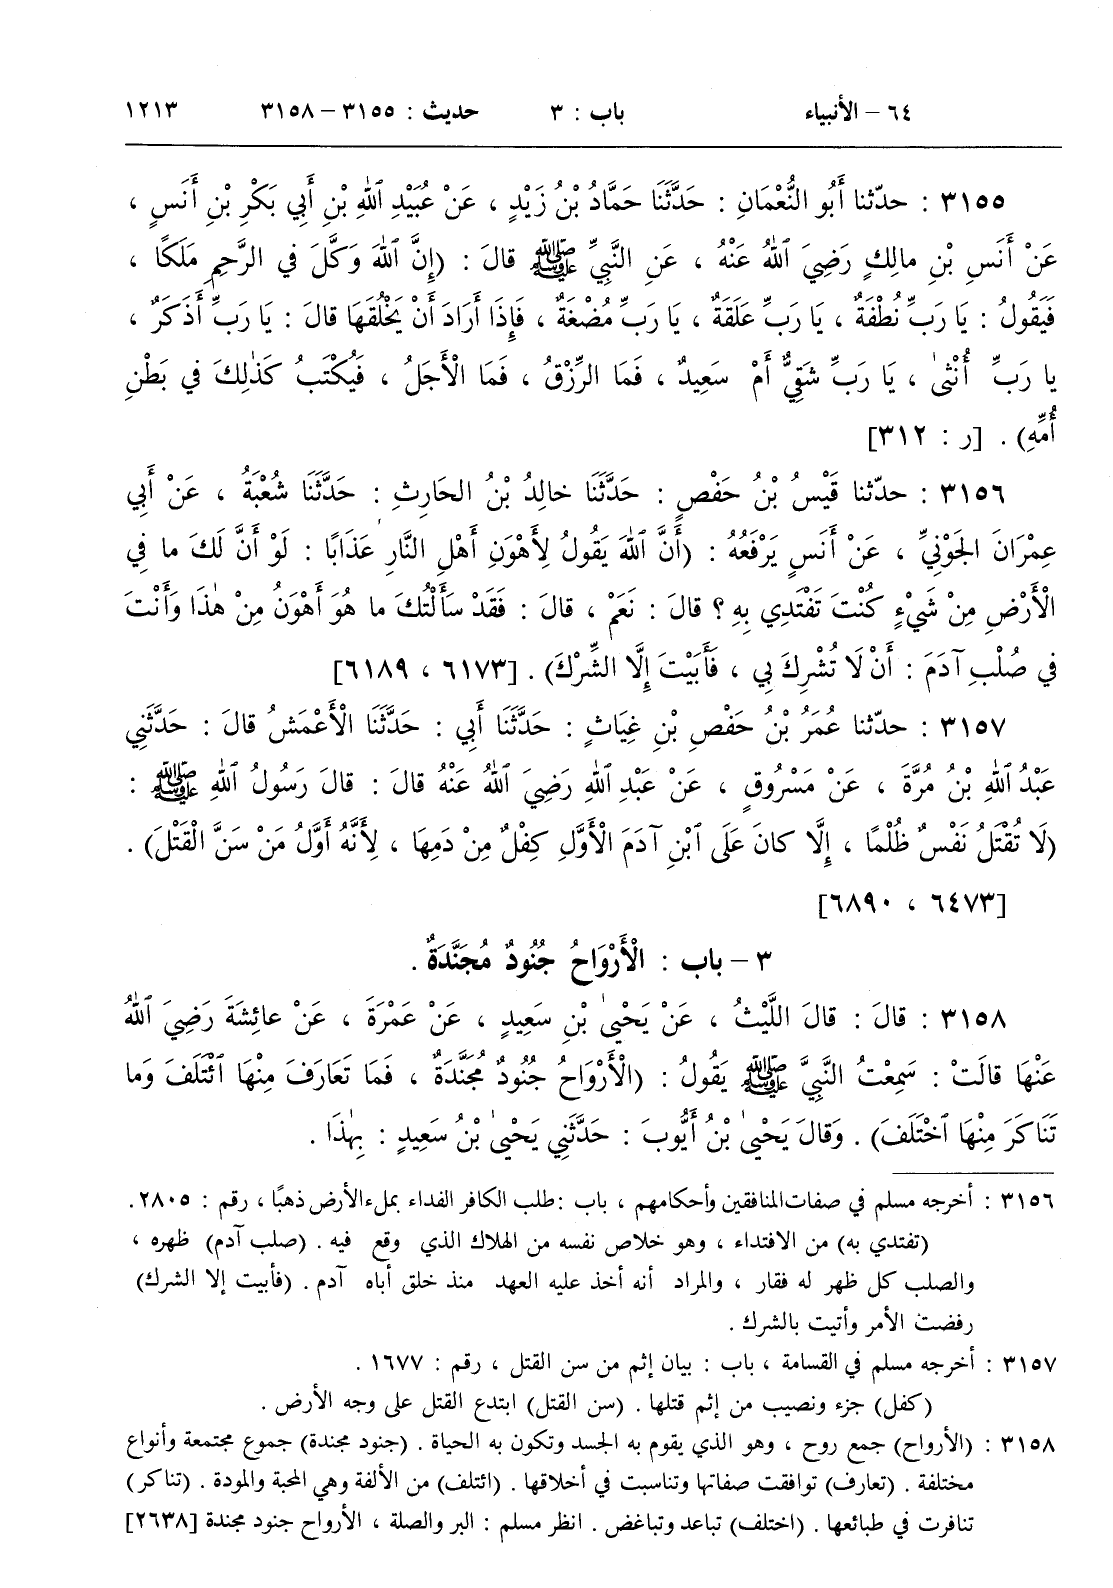 ٦٤ – الأنبياء باب : ٣ حديث : ٣١٥٥ – ٣١٥٨ ١٢١٣
٣١٥٥ : حدّثنا أَبُو النُّعْمَانِ : حَدَّثَنَا حَمَّادُ بْنُ زَيْدٍ ، عَنْ عُبَيْدِ ٱللهِ بْنِ أَبِي بَكْرِ بْنِ أَنَسٍ ،
عَنْ أَنَسِ بْنِ مالِكٍ رَضِيَ ٱللهُ عَنْهُ ، عَنِ النَّبِيِّ ﷺ قالَ : (إِنَّ ٱللهَ وَكَّلَ في الرَّحِمِ مَلَكًا ،
فَيَقُولُ : يَا رَبِّ نُطْفَةٌ ، يَا رَبِّ عَلَقَةٌ ، يَا رَبِّ مُضْغَةٌ ، فَإِذَا أَرَادَ أَنْ يَخْلُقَهَا قالَ : يَا رَبِّ أَذَكَرٌ ،
يا رَبِّ أُنْثَىٰ ، يَا رَبِّ شَقِيٌّ أَمْ سَعِيدٌ ، فَمَا الرِّزْقُ ، فَمَا الْأَجَلُ ، فَيُكْتَبُ كَذٰلِكَ في بَطْنِ
أُمِّهِ) . [ر : ٣١٢]
٣١٥٦ : حدّثنا قَيْسُ بْنُ حَفْصٍ : حَدَّثَنَا خالِدُ بْنُ الحَارِثِ : حَدَّثَنَا شُعْبَةُ ، عَنْ أَبِي
عِمْرَانَ الجَوْنِيِّ ، عَنْ أَنَسٍ يَرْفَعُهُ : (أَنَّ ٱللهَ يَقُولُ لِأَهْوَنِ أَهْلِ النَّارِ عَذَابًا : لَوْ أَنَّ لَكَ ما في
الْأَرْضِ مِنْ شَيْءٍ كُنْتَ تَفْتَدِي بِهِ ؟ قالَ : نَعَمْ ، قالَ : فَقَدْ سَأَلْتُكَ ما هُوَ أَهْوَنُ مِنْ هٰذَا وَأَنْتَ
في صُلْبِ آدَمَ : أَنْ لَا تُشْرِكَ بِي ، فَأَبَيْتَ إِلَّا الشِّرْكَ) . [٦١٧٣ ، ٦١٨٩]
٣١٥٧ : حدّثنا عُمَرُ بْنُ حَفْصِ بْنِ غِيَاثٍ : حَدَّثَنَا أَبِي : حَدَّثَنَا الْأَعْمَشُ قالَ : حَدَّثَنِي
عَبْدُ ٱللهِ بْنُ مُرَّةَ ، عَنْ مَسْرُوقٍ ، عَنْ عَبْدِ ٱللهِ رَضِيَ ٱللهُ عَنْهُ قالَ : قالَ رَسُولُ ٱللهِ ﷺ :
(لَا تُقْتَلُ نَفْسٌ ظُلْمًا ، إِلَّا كانَ عَلَى ٱبْنِ آدَمَ الْأَوَّلِ كِفْلٌ مِنْ دَمِهَا ، لِأَنَّهُ أَوَّلُ مَنْ سَنَّ الْقَتْلَ) .
[٦٤٧٣ ، ٦٨٩٠]
٣ – باب : الْأَرْوَاحُ جُنُودٌ مُجَنَّدَةٌ .
٣١٥٨ : قالَ : قالَ اللَّيْثُ ، عَنْ يَحْيَىٰ بْنِ سَعِيدٍ ، عَنْ عَمْرَةَ ، عَنْ عائِشَةَ رَضِيَ ٱللهُ
عَنْهَا قالَتْ : سَمِعْتُ النَّبِيَّ ﷺ يَقُولُ : (الْأَرْوَاحُ جُنُودٌ مُجَنَّدَةٌ ، فَمَا تَعَارَفَ مِنْهَا ٱئْتَلَفَ وَما
تَنَاكَرَ مِنْهَا ٱخْتَلَفَ) . وَقالَ يَحْيَىٰ بْنُ أَيُّوبَ : حَدَّثَنِي يَحْيَىٰ بْنُ سَعِيدٍ : بِهٰذَا .
٣١٥٦ : أخرجه مسلم في صفات المنافقين وأحكامهم ، باب : طلب الكافر الفداء بملء الأرض ذهبًا ، رقم : ٢٨٠٥ .
(تفتدي به) من الافتداء ، وهو خلاص نفسه من الهلاك الذي وقع فيه . (صلب آدم) ظهره ،
والصلب كل ظهر له فقار ، والمراد أنه أخذ عليه العهد منذ خلق أباه آدم . (فأبيت إلا الشرك)
رفضت الأمر وأتيت بالشرك .
٣١٥٧ : أخرجه مسلم في القسامة ، باب : بيان إثم من سن القتل ، رقم : ١٦٧٧ .
(كفل) جزء ونصيب من إثم قتلها . (سن القتل) ابتدع القتل على وجه الأرض .
٣١٥٨ : (الأرواح) جمع روح ، وهو الذي يقوم به الجسد وتكون به الحياة . (جنود مجندة) جموع مجتمعة وأنواع
مختلفة . (تعارف) توافقت صفاتها وتناسبت في أخلاقها . (ائتلف) من الألفة وهي المحبة والمودة . (تناكر)
تنافرت في طبائعها . (اختلف) تباعد وتباغض . انظر مسلم : البر والصلة ، الأرواح جنود مجندة [٢٦٣٨]